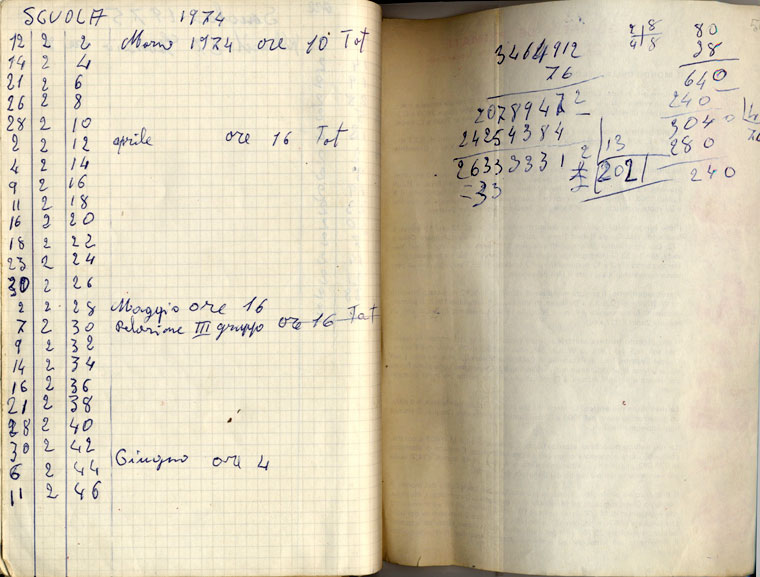 SCUOLA 1974
12 2 2 Marzo 1974 ore 10 Tot
14 2 4
21 2 6
26 2 8
28 2 10
2 2 12 aprile ore 16 Tot
4 2 14
9 2 16
11 2 18
16 2 20
18 2 22
23 2 24
30 2 26
2 2 28 Maggio ore 16
7 2 30 Relazione III gruppo ore 16 Tot
9 2 32
14 2 34
16 2 36
21 2 38
28 2 40
30 2 42
6 2 44 Giugno ore 4
11 2 46
3464912
76
24254384
26333331
33
13
202
80
38
640
240
3040
280
240